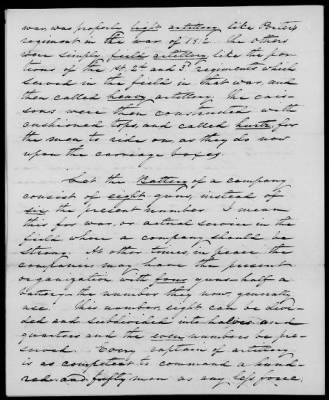 war, was properly light artillery like
regiment in the war of 1812. The others
were simply field artillery, like the
of the 1st, 2d and 3d regiments which
served in the field in that war, and
then called heavy artillery. The cais-
sons were then constructed with
cushioned tops, and called
the men to ride on, as they do now
upon the carriage boxes.
Let the Battery of a company
consist of eight guns, instead of
six the present number. I mean
this for war, or actual service in the
field where a company should be
strong. At other times in peace the
companies may have the present
organization with four guns half a
battery—the number they now generally
use. This number, eight can be divi-
ded and subdivided into halves and
quarters and the even numbers be pre-
served. Every captain of artillery
is as competent to command a hund-
red and fifty men as any less force.